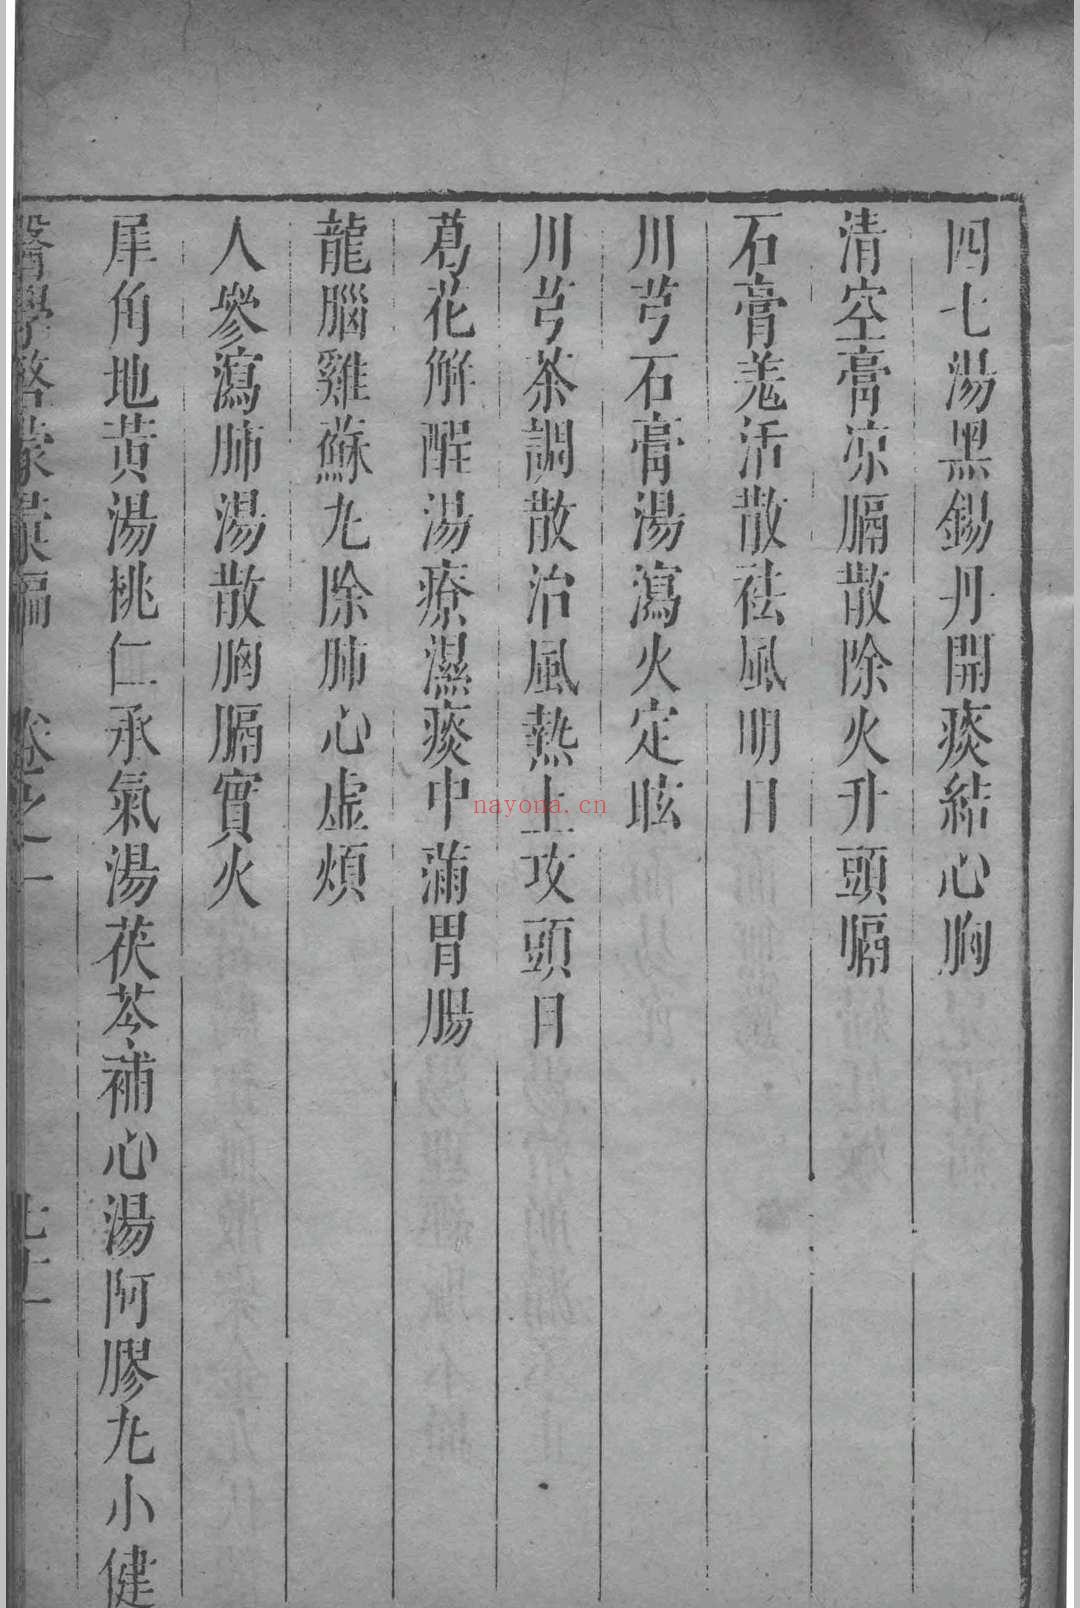 四七湯黑錫丹開痰結心胸
清空膏凉膈散除火升頭膈
石膏羗活散祛風明目
川芎石膏湯瀉火定眩
川芎茶調散治風熱上攻頭目
葛花解酲湯療濕痰中滿胃腸
龍腦雞蘇九除肺心虚煩
人參瀉肺湯散胸膈實火
犀角地黄湯桃仁承氣湯茯苓補心湯阿膠九小健
醫學啓蒙彙編 卷之一
nayona.cn